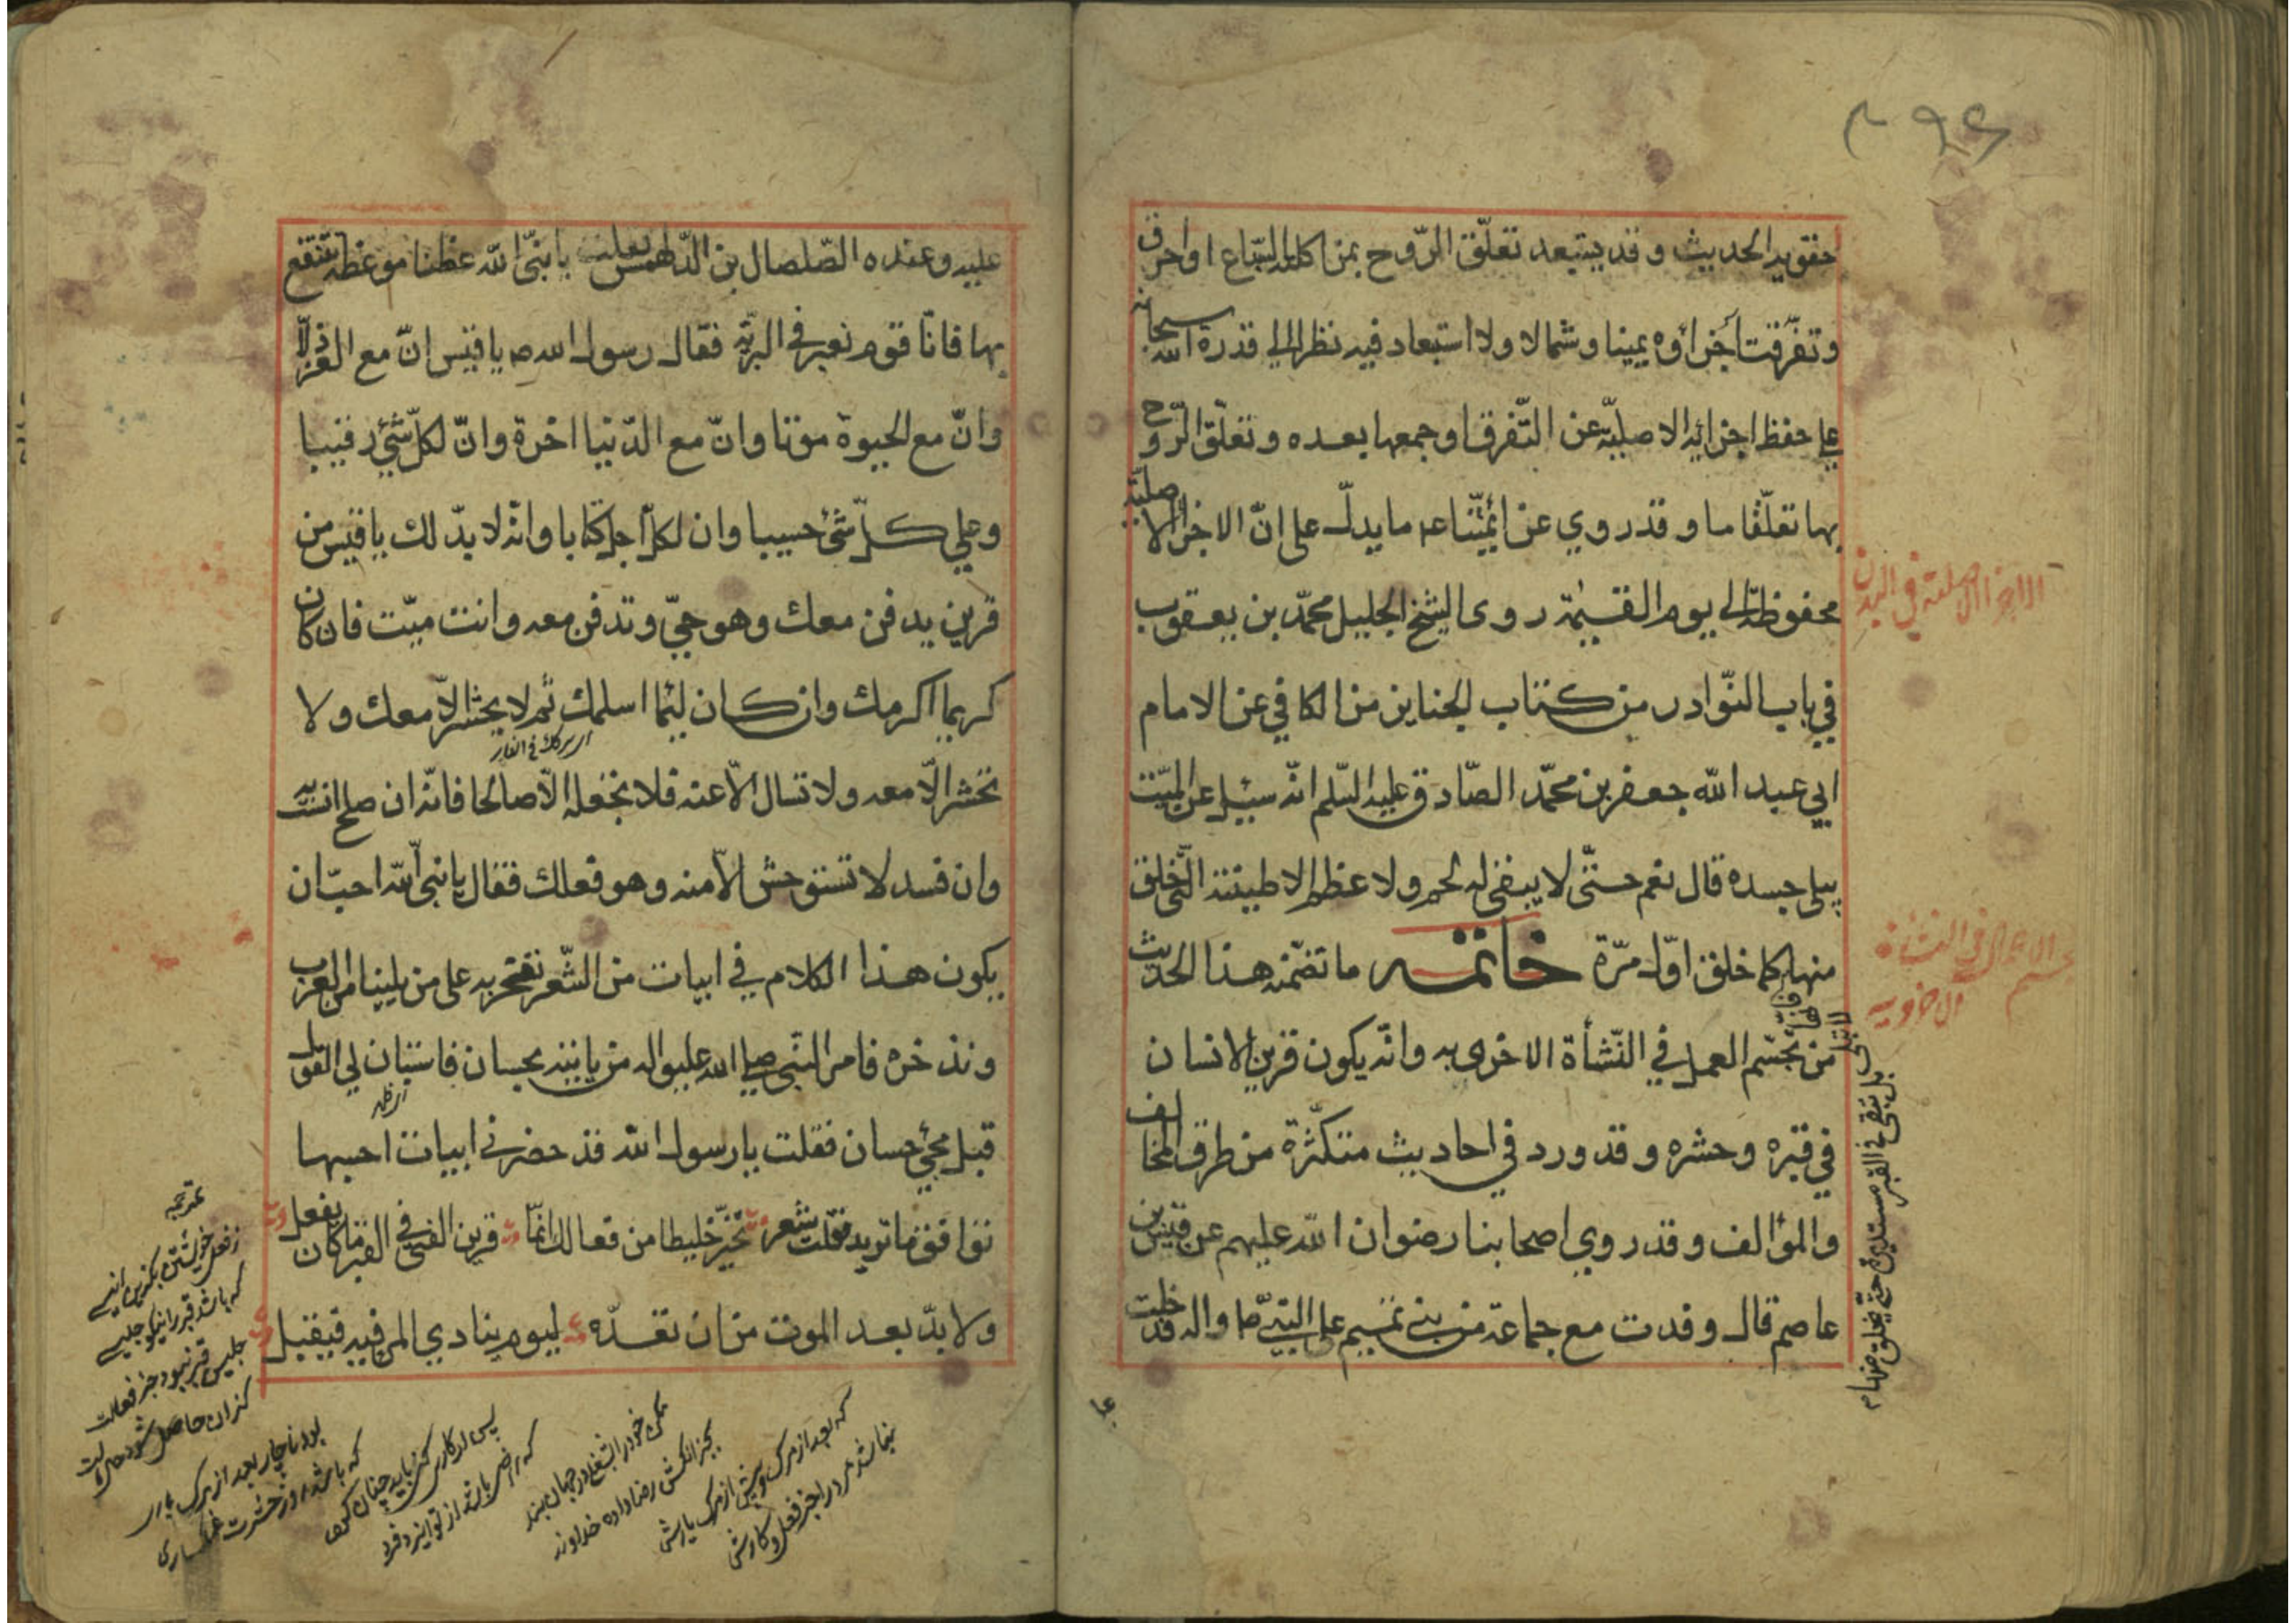 حقويه الحديث وقد يستبعد تعلّق الرّوح بمن اكلته السّباع او احرق
وتفرّقت أجزاؤه يمينا وشمالا ولا استبعاد فيه نظرا الى قدرة الله سبحانه
على حفظ اجزائه الاصليّة عن التّفرق او جمعها بعده وتعلّق الرّوح
بها تعلّقا ما وقد روي عن ائمّتنا عم ما يدلّ على انّ الاجزاء الاصليّة
محفوظة الى يوم القيمة روى الشيخ الجليل محمّد بن يعقوب
في باب النّوادر من كتاب الجنايز من الكافي عن الامام
ابي عبد الله جعفر بن محمّد الصّادق عليه السّلم انّه سئيل عن الميّت
يبلى جسده قال نعم حتّى لا يبقى له لحم ولا عظم الا طينته الّتي خلق
منها كما خلق اوّل مرّة خاتمه ما تضمّنه هذا الحديث
من تجسّم العمل في النّشأة الاخرويه وانّه يكون قرين الانسان
في قبره وحشره وقد ورد في احاديث متكثّرة من طرق المخالف
والمؤالف وقد روي اصحابنا رضوان الله عليهم عن قيس بن
عاصم قال وفدت مع جماعة من بني تميم على النبيّ ص واله فدخلت
الاجزاء الاصلية في البدن
لا تبلى
بل تبقى في القبر مستديرة حتى يخلق منها م
عليه وعنده الصّلصال بن الدّلهمس فقلت يا نبيّ الله عظنا موعظة ننتفع
بها فانّا قوم نعبر في البريّة فقال رسول الله ص يا قيس انّ مع العزّ ذلّا
وانّ مع الحيوة موتا وانّ مع الدّنيا اخرة وانّ لكلّ شيء رقيبا
وعلى كلّ شئ حسيبا وان لكلّ اجل كتابا وانّه لا بدّ لك يا قيس من
قرين يدفن معك وهو حيّ وتدفن معه وانت ميّت فان كان
كريما اكرمك وان كان لئيما اسلمك ثم لا يحشر الّا معك ولا
تحشر الّا معه ولا تسال الّا عنه فلا تجعله الّا صالحا فانّه ان صلح انست به
وان فسد لا تستوحش الّا منه وهو فعلك فقال يا نبي الله احبّ ان
يكون هذا الكلام في ابيات من الشّعر نفتخر به على من يلينا من العرب
ونذخره فامر النّبي صلى الله عليه واله من ياتيه بحسان فاستبان لي القول
قبل مجئ حسان فقلت يا رسول الله قد حضرني ابيات احسبها
توافق ما تريد فقلت شعر تخيّر خليطا من فعالك انّما قرين الفتى في القبر ما كان يفعل
ولا بدّ بعد الموت من ان تعدّه ليوم ينادي المرء فيه فيقبل
ترجمه
جليس قبر نبود جز فعالت
بود ناچار بعد از مرك
كه باشد روز حشرت غمكساري